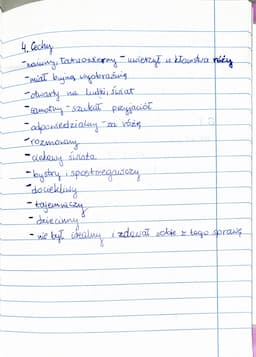 4. Cechy
- naiwny, łatwowierny - uwierzył w kłamstwa róży
- miał bujną wyobraźnię
- otwarty na ludzi, świat
- samotny - szukał przyjaciół
- odpowiedzialny - za różę
- rozmowny
- ciekawy świata
- bystry i spostrzegawczy
- dociekliwy
- tajemniczy
- dziecinny
- nie był idealny i zdawał sobie z tego sprawę